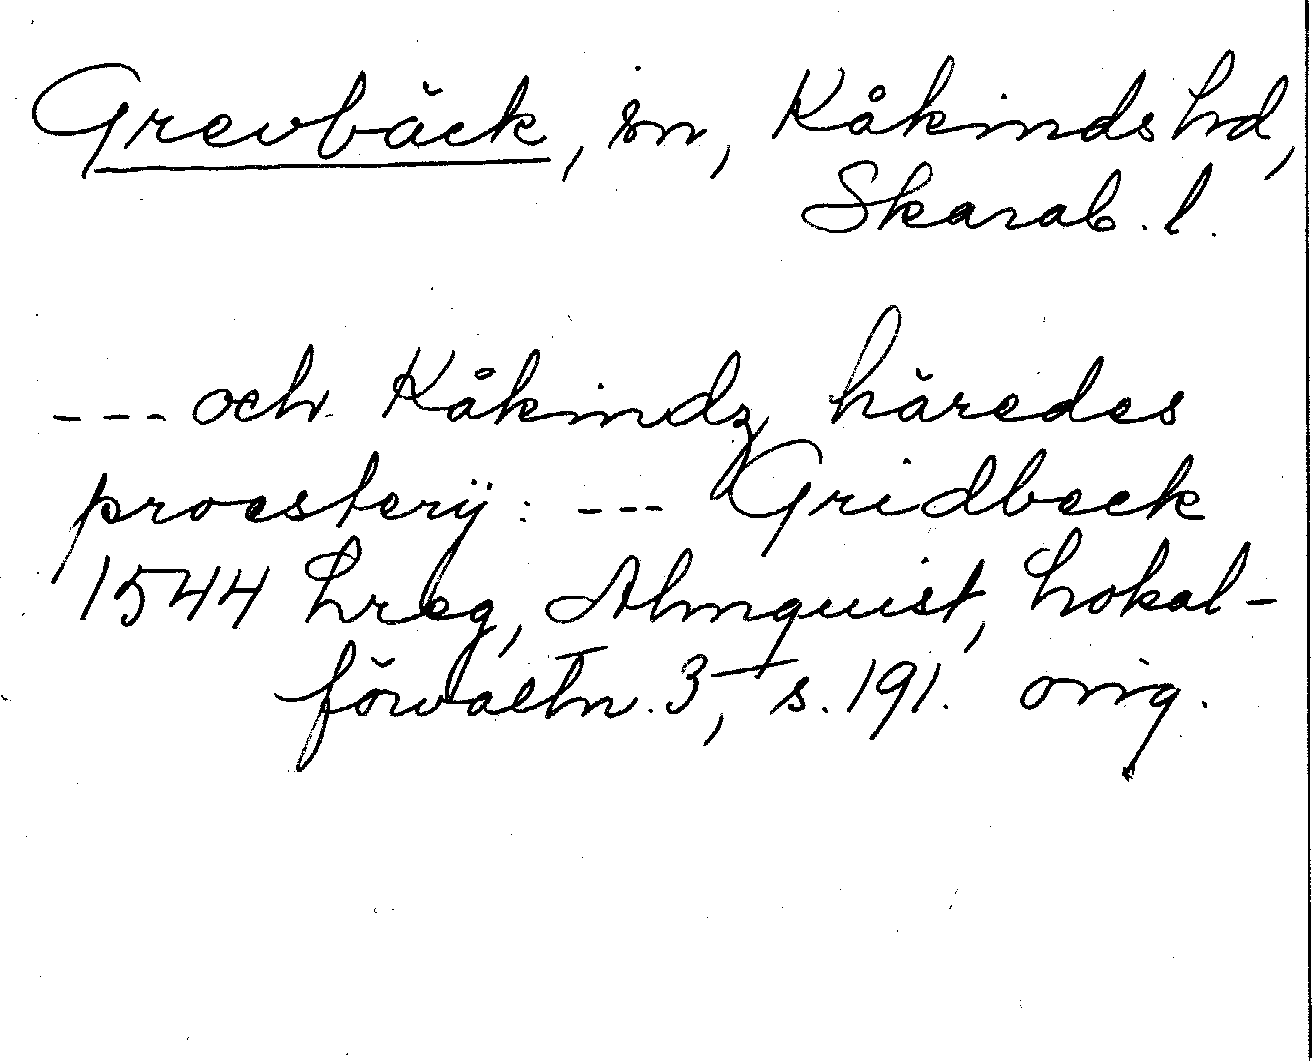 Grevbäck, sn, Kåkinds hd,
Skarab. l.
--- och Kåkindz häredes
proesterij: --- Gridbeck
1544 Lreg, Almquist, Lokal-
förvaltn. 3, s. 191. orig.